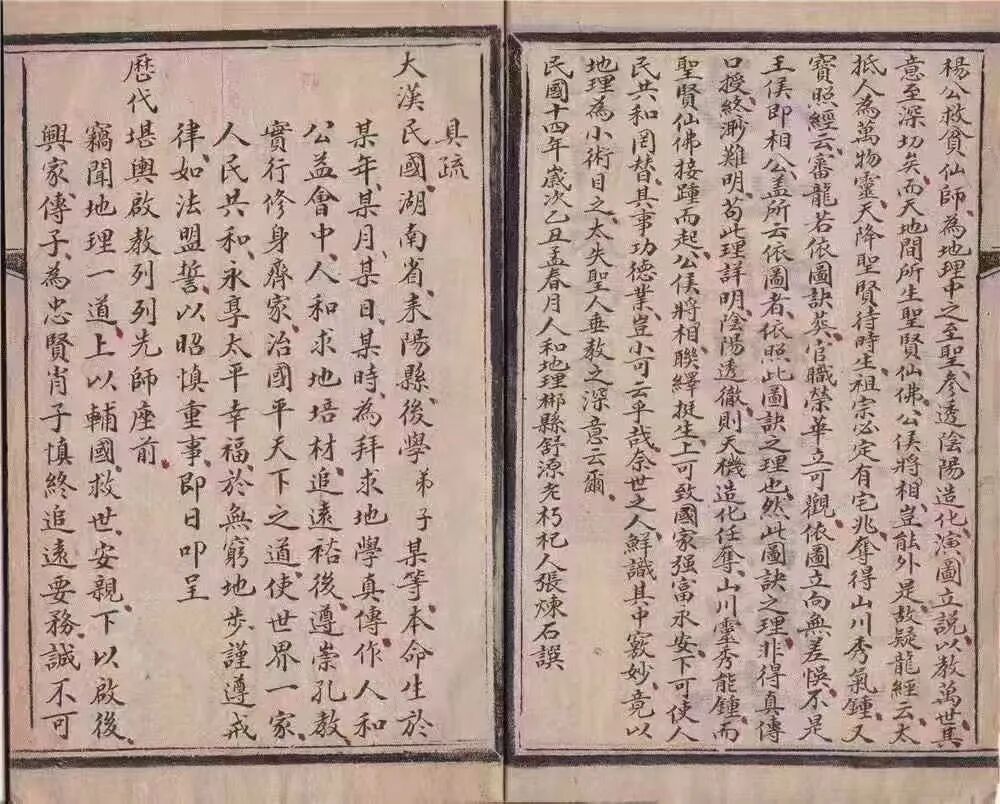 楊公救貧仙師、為地理中之至聖、參透陰陽造化、演圖立説、以教萬世、其
意至深切矣、而天地間所生聖賢仙佛、公侯將相、豈能外是、故疑龍經云、太
抵人為萬物靈、天降聖賢待時生、祖宗必定有宅兆、奪得山川秀氣鍾、又
寶照經云、審龍若依圖訣葬、官職榮華立可觀、依圖立向無差悞、不是
王侯即相公、盖所云依圖者、依照此圖訣之理也、然此圖訣之理、非得真傳
口授、終渺難明、苟此理詳明、陰陽透徹、則天機造化任奪、山川靈秀能鍾、而
聖賢仙佛接踵而起、公侯將相聯繹挺生、上可致國家强富永安、下可使人
民共和罔替、其事功德業、豈小可云乎哉、奈世之人、鮮識其中竅妙、竟以
地理為小術目之、太失聖人垂教之深意云爾、
民國十四年歲次乙丑孟春月人和地理郴縣舒源先朽杞人張煉石譔
具疏
大漢民國、湖南省、耒陽縣、後學弟子某等、本命生於
某年、某月、某日、某時、為拜求地學真傳、作人和
公益會中、人和求地培材、追遠裕後、遵崇孔教、
實行修身齊家、治國平天下之道、使世界一家、
人民共和、永享太平幸福於無窮地步、謹遵戒
律、如法盟誓、以昭慎重事、即日叩呈
歷代堪輿啟教列列先師座前、
竊聞地理一道、上以輔國救世、安親、下以啟後、
興家、傳子、為忠賢肖子慎終追遠要務、誠不可